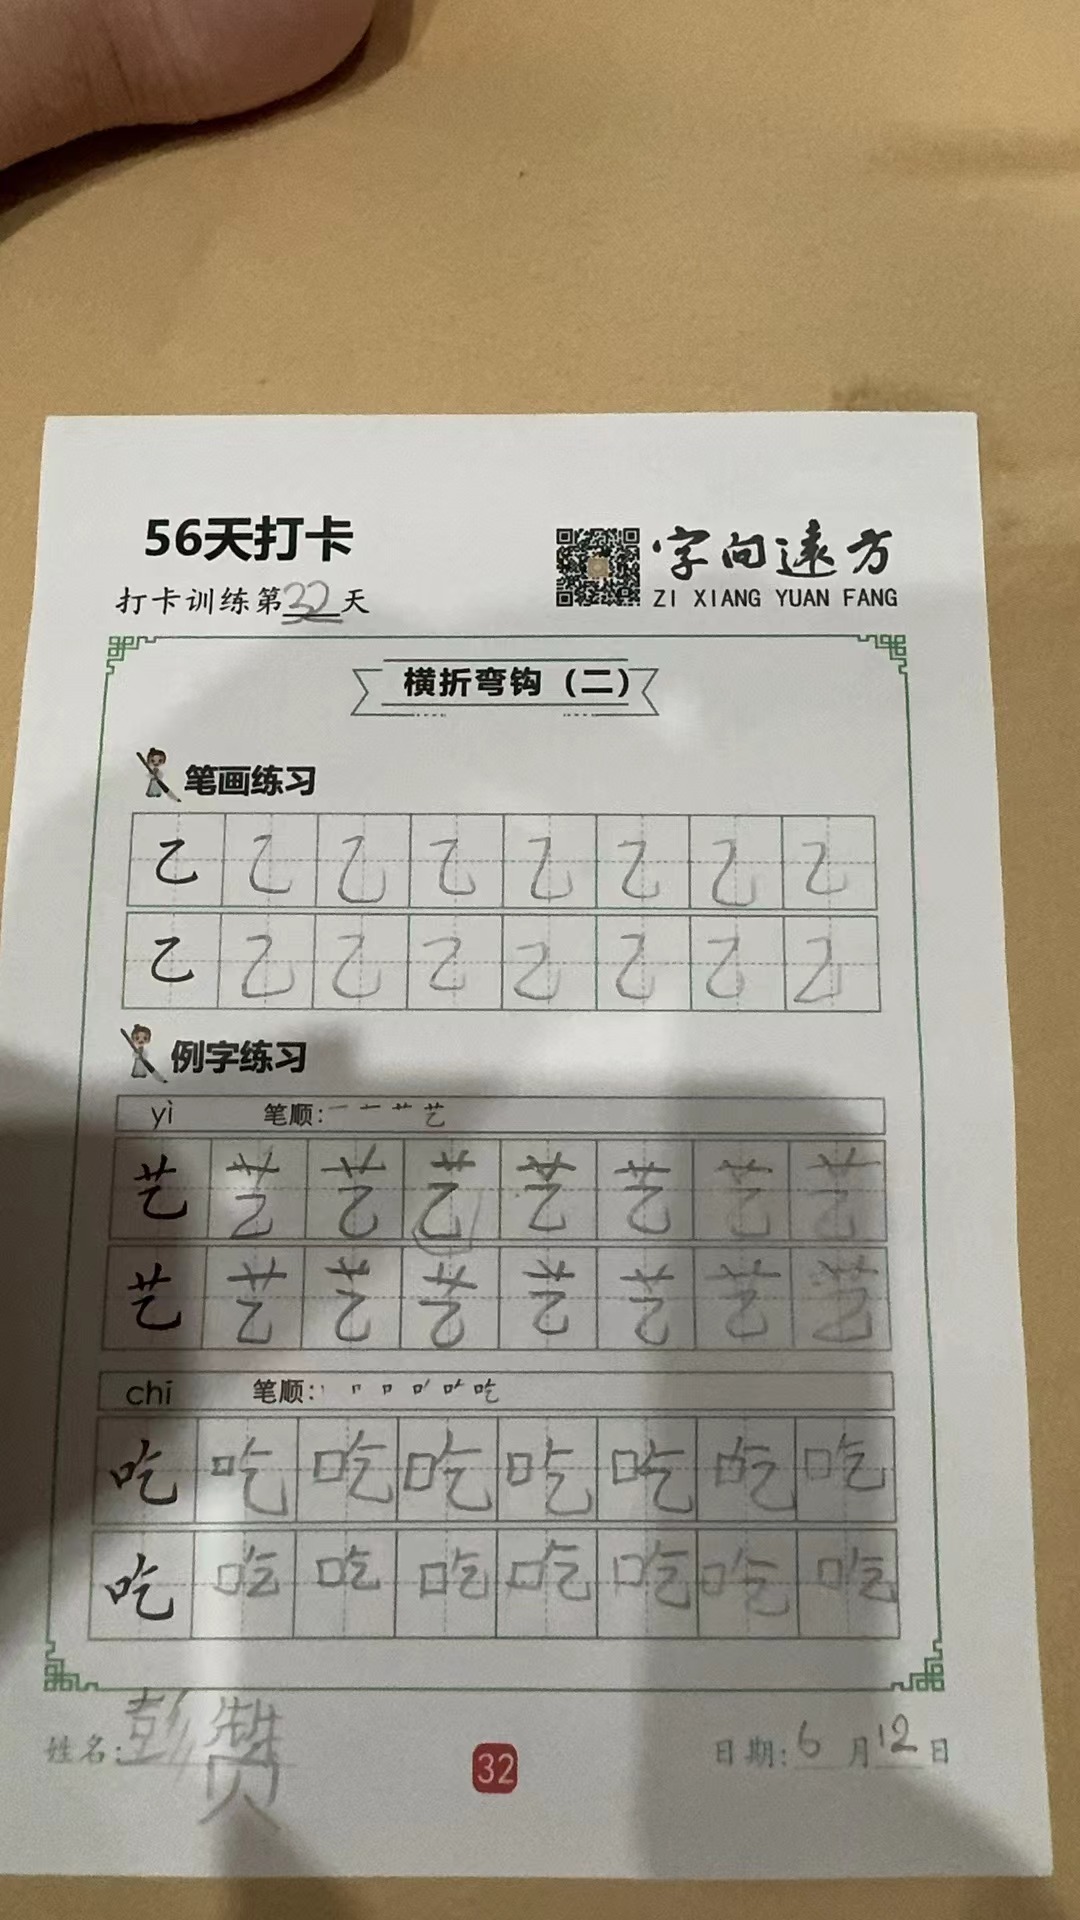 56天打卡
打卡训练第32天
字向远方
ZI XIANG YUAN FANG
横折弯钩（二）
笔画练习
乙 乙 乙 乙 乙 乙 乙 乙
乙 乙 乙 乙 乙 乙 乙 乙
例字练习
yì 笔顺：一 十 艹 艺
艺 艺 艺 艺 艺 艺 艺 艺
艺 艺 艺 艺 艺 艺 艺 艺
chī 笔顺：
吃 吃 吃 吃 吃 吃 吃 吃
吃 吃 吃 吃 吃 吃 吃 吃
姓名：彭赞
32
日期：6月12日